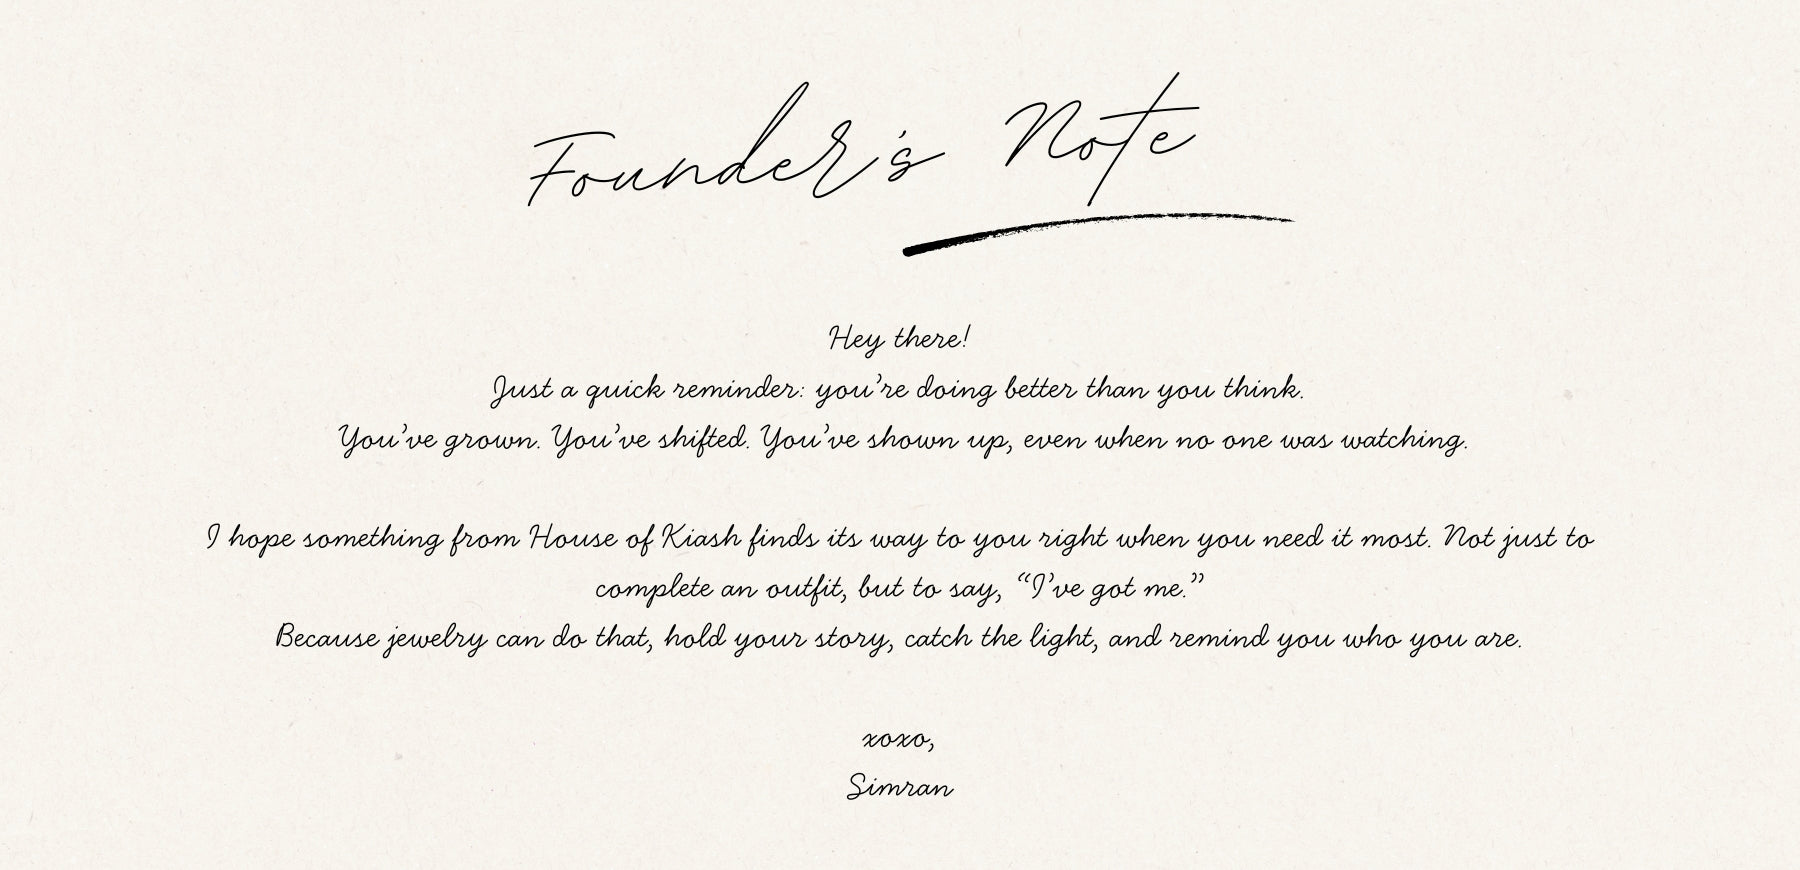 Founder's Note
Hey there!
Just a quick reminder: you’re doing better than you think.
You’ve grown. You’ve shifted. You’ve shown up, even when no one was watching.
I hope something from House of Kiash finds its way to you right when you need it most. Not just to
complete an outfit, but to say, “I’ve got me.”
Because jewelry can do that, hold your story, catch the light, and remind you who you are.
xoxo,
Simran